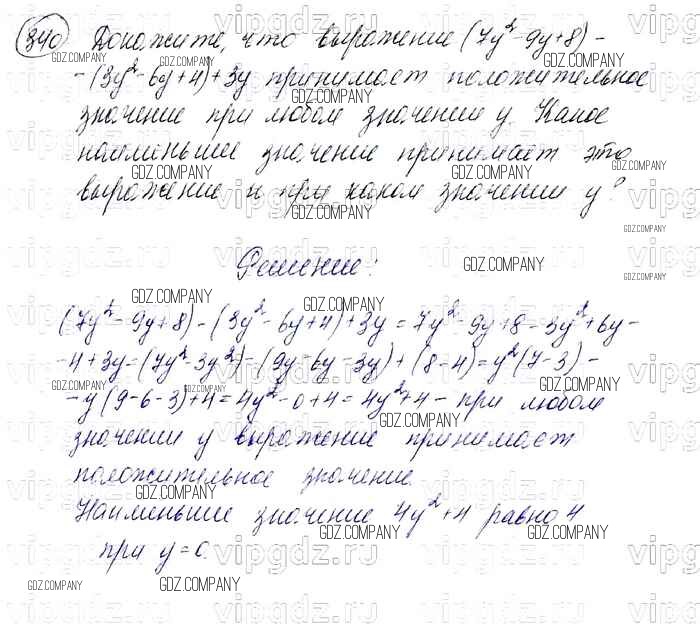 340 Докажите, что выражение (7y²-9y+8)-
-(3y²-6y+4)+3y принимает положительное
значение при любом значении y. Какое
наименьшее значение принимает это
выражение и при каком значении y?
Решение:
(7y²-9y+8)-(3y²-6y+4)+3y=7y²-9y+8-3y²+6y-
-4+3y=(7y²-3y²)-(9y-6y-3y)+(8-4)=y²(7-3)-
-y(9-6-3)+4=4y²-0+4=4y²+4- при любом
значении y выражение принимает
положительное значение.
Наименьшее значение 4y²+4 равно 4
при y=0.
GDZ.COMPANY
vipgdz.ru